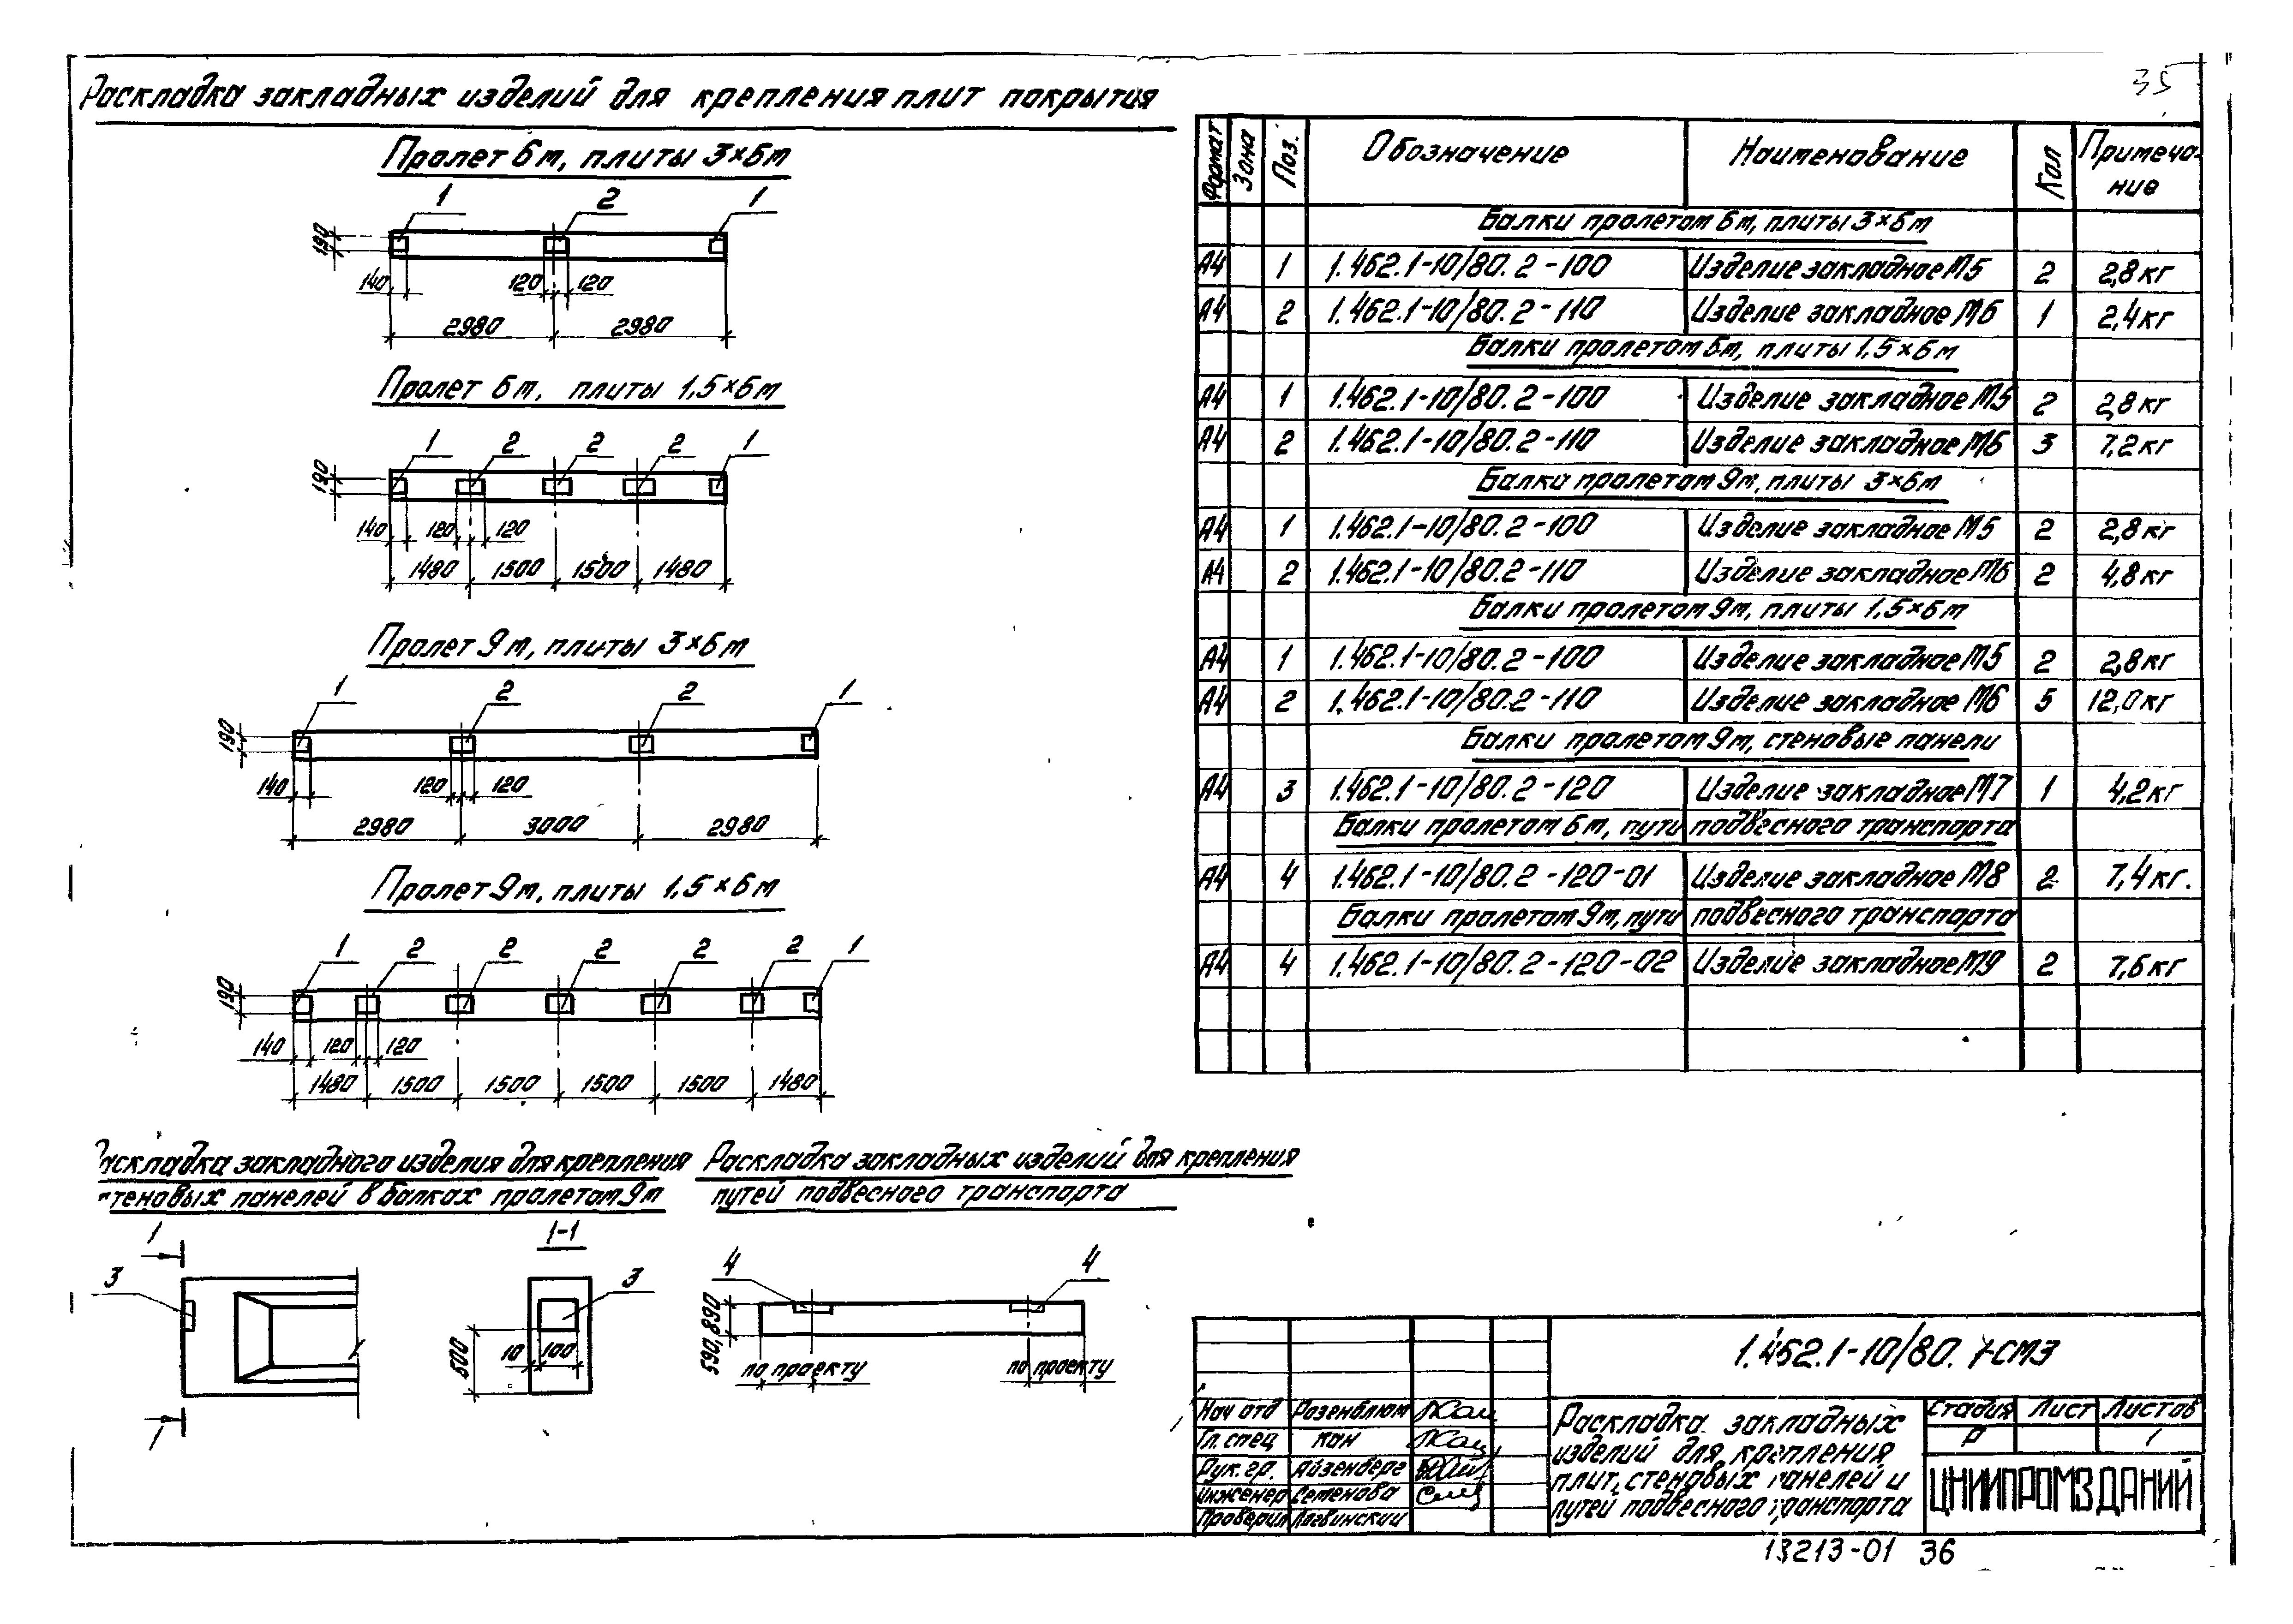 35
Раскладка закладных изделий для крепления плит покрытия
Пролет 6м, плиты 3×6м
1 2 1
190
140 120 120
2980 2980
Пролет 6м, плиты 1,5×6м
1 2 2 2 1
190
140 120 120
1480 1500 1500 1480
Пролет 9м, плиты 3×6м
1 2 2 1
190
140 120 120
2980 3000 2980
Пролет 9м, плиты 1,5×6м
1 2 2 2 2 2 1
190
140 120 120
1480 1500 1500 1500 1500 1480
Раскладка закладного изделия для крепления
стеновых панелей в балках пролетом 9м
1
3
1
1-1
3
600
10 100
Раскладка закладных изделий для крепления
путей подвесного транспорта
4 4
590, 890
по проекту по проекту
Формат Зона Поз. Обозначение Наименование Кол Примеча-
ние
Балки пролетом 6м, плиты 3×6м
А4 1 1.462.1-10/80.2-100 Изделие закладное М5 2 2,8кг
А4 2 1.462.1-10/80.2-110 Изделие закладное М6 1 2,4кг
Балки пролетом 6м, плиты 1,5×6м
А4 1 1.462.1-10/80.2-100 Изделие закладное М5 2 2,8кг
А4 2 1.462.1-10/80.2-110 Изделие закладное М6 3 7,2кг
Балки пролетом 9м, плиты 3×6м
А4 1 1.462.1-10/80.2-100 Изделие закладное М5 2 2,8кг
А4 2 1.462.1-10/80.2-110 Изделие закладное М6 2 4,8кг
Балки пролетом 9м, плиты 1,5×6м
А4 1 1.462.1-10/80.2-100 Изделие закладное М5 2 2,8кг
А4 2 1.462.1-10/80.2-110 Изделие закладное М6 5 12,0кг
Балки пролетом 9м, стеновые панели
А4 3 1.462.1-10/80.2-120 Изделие закладное М7 1 4,2кг
Балки пролетом 6м, пути подвесного транспорта
А4 4 1.462.1-10/80.2-120-01 Изделие закладное М8 2 7,4кг.
Балки пролетом 9м, пути подвесного транспорта
А4 4 1.462.1-10/80.2-120-02 Изделие закладное М9 2 7,6кг
1.462.1-10/80.1-СМ3
Нач отд Розенблюм
Гл. спец Кан
Рук. гр. Айзенберг
Инженер Семенова
Проверил Логвинский
Раскладка закладных
изделий для крепления
плит, стеновых панелей и
путей подвесного транспорта
Стадия Лист Листов
Р 1
ЦНИИПРОМЗДАНИЙ
18213-01 36